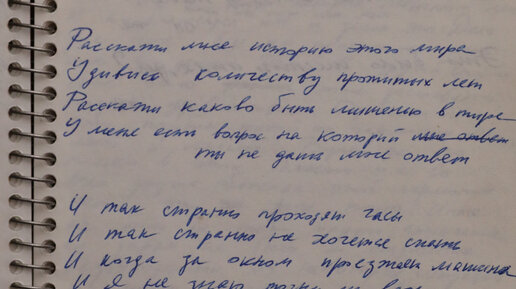 Расскажи мне историю этого мира
Удивись количеству прожитых лет
Расскажи каково быть мишенью в тире
У меня есть вопрос на который мне ответ
ты не дашь мне ответ
И так странно проходят часы
И так странно не хочется спать
И когда за окном проезжает машина
И я не знаю точно